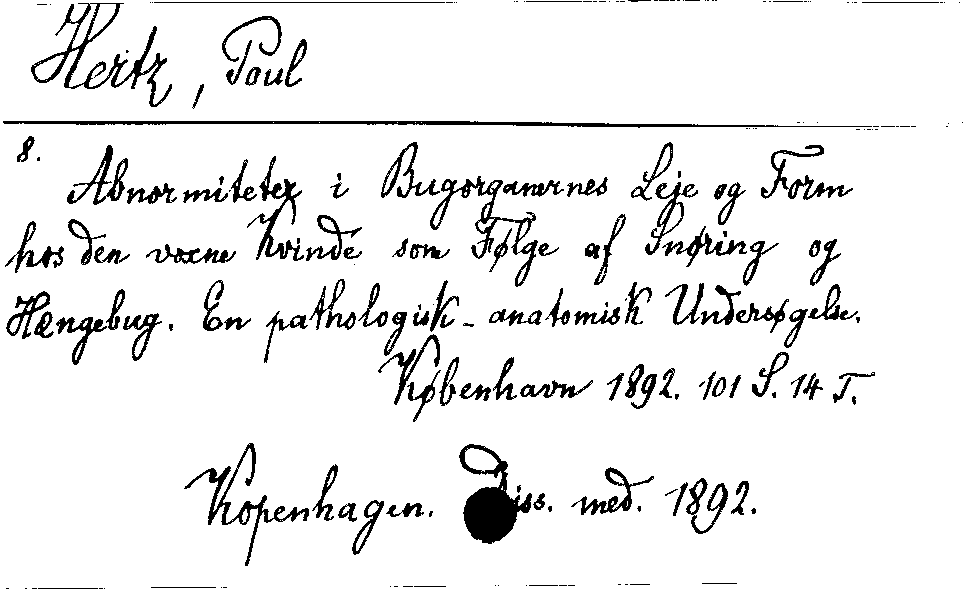 Hertz, Poul
8.
Abnormiteter i Bugorganernes Leje og Form
hos den voxne Kvinde som Følge af Snøring og
Hængebug. En pathologisk-anatomisk Undersøgelse.
København 1892. 101 S. 14 T.
Kopenhagen. Diss. med. 1892.